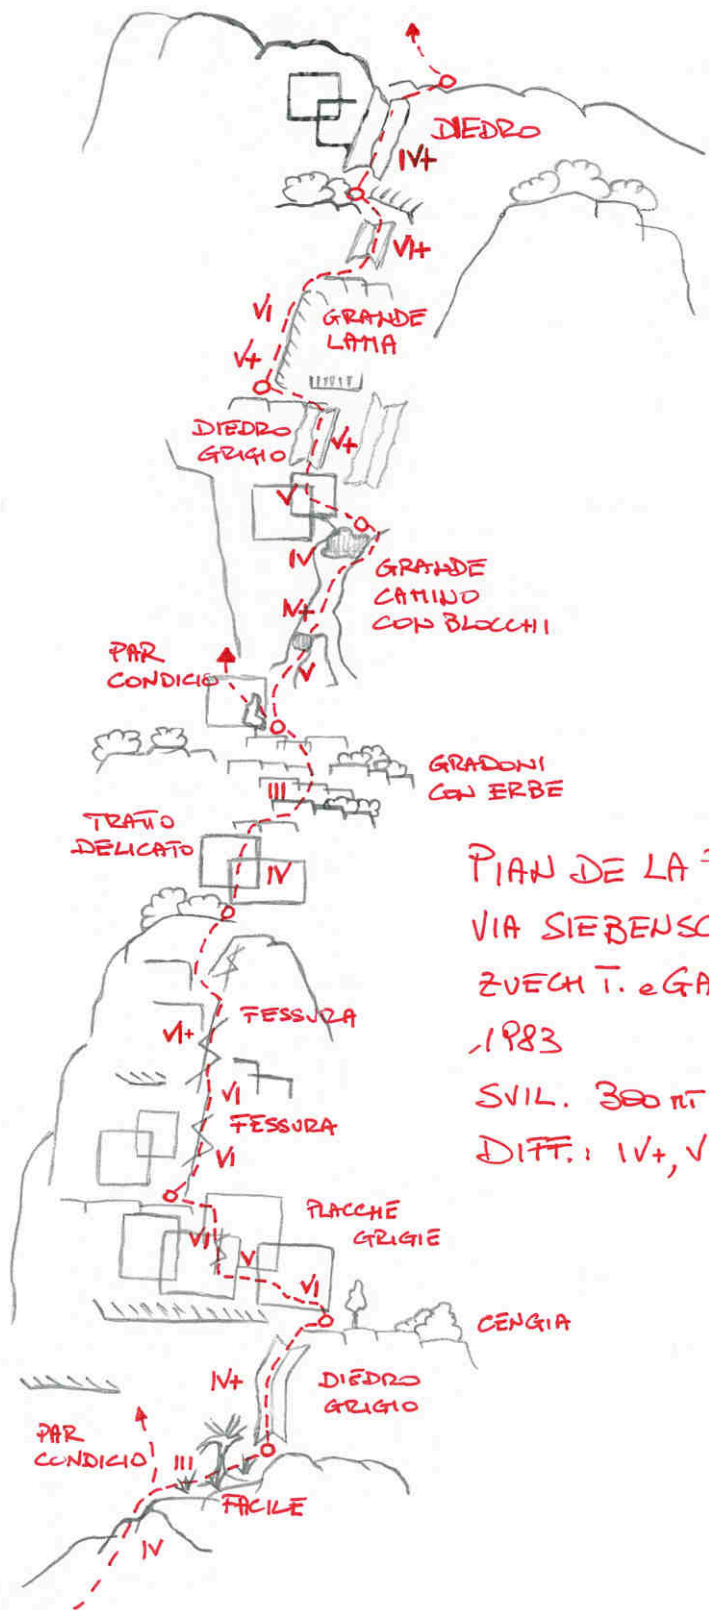 DIEDRO
IV+
VI+
VI
GRANDE
LAMA
V+
DIEDRO
GRIGIO
V+
V
IV
GRANDE
CAMINO
CON BLOCCHI
IV+
PAR
CONDICIO
V
GRADONI
CON ERBE
III
TRATTO
DELICATO
IV
PIAN DE LA
VIA SIEBENSC
ZUECH T. e GA
1983
SVIL. 300 MT
DIFF.: IV+, V
FESSURA
VI+
VI
FESSURA
VI
PLACCHE
GRIGIE
VI
V
VI
CENGIA
IV+
DIEDRO
GRIGIO
PAR
CONDICIO
III
FACILE
IV